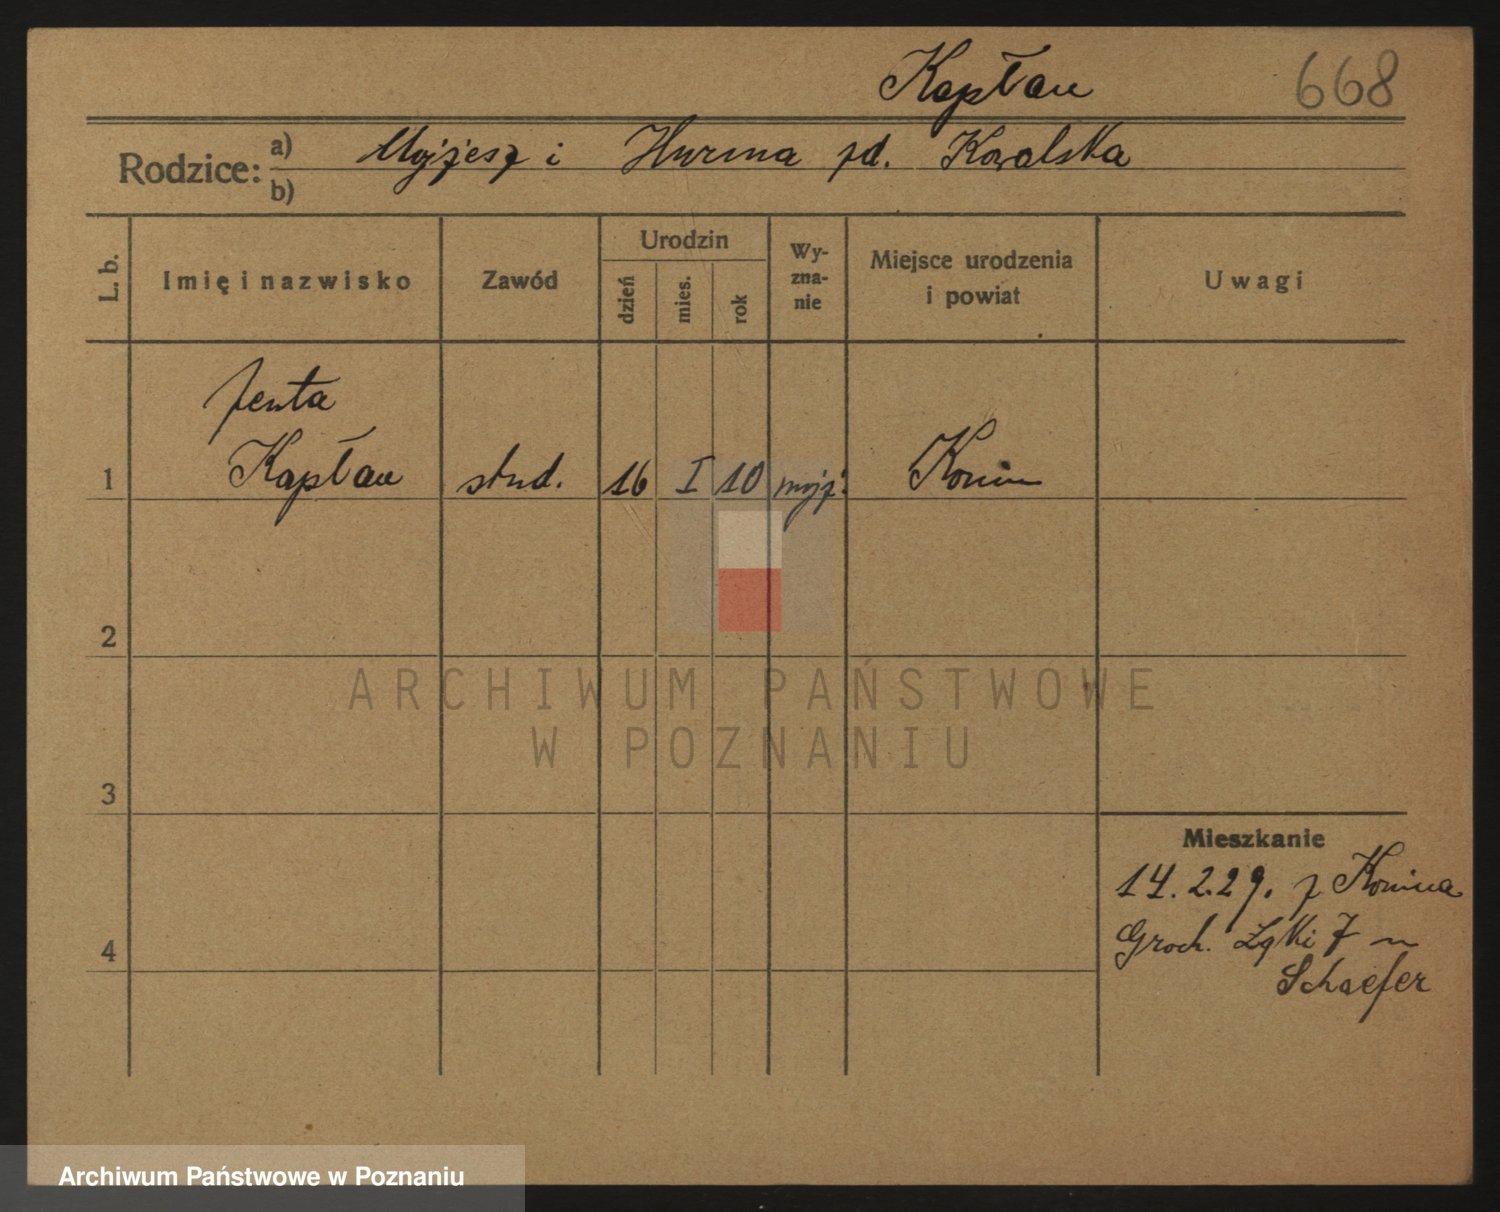 Kapłan 668
Rodzice: a) Mojżesz i Hurma zd. Kowalska
b)
L. b. Imię i nazwisko Zawód Urodzin dzień mies. rok Wyznanie Miejsce urodzenia i powiat Uwagi
Jenta
1 Kapłan stud. 16 I 10 mojż. Konin
2
ARCHIWUM PAŃSTWOWE
W POZNANIU
3
Mieszkanie
14.2.29. z Konina
4 Groch. Łąki 7 u
Schaefer
Archiwum Państwowe w Poznaniu